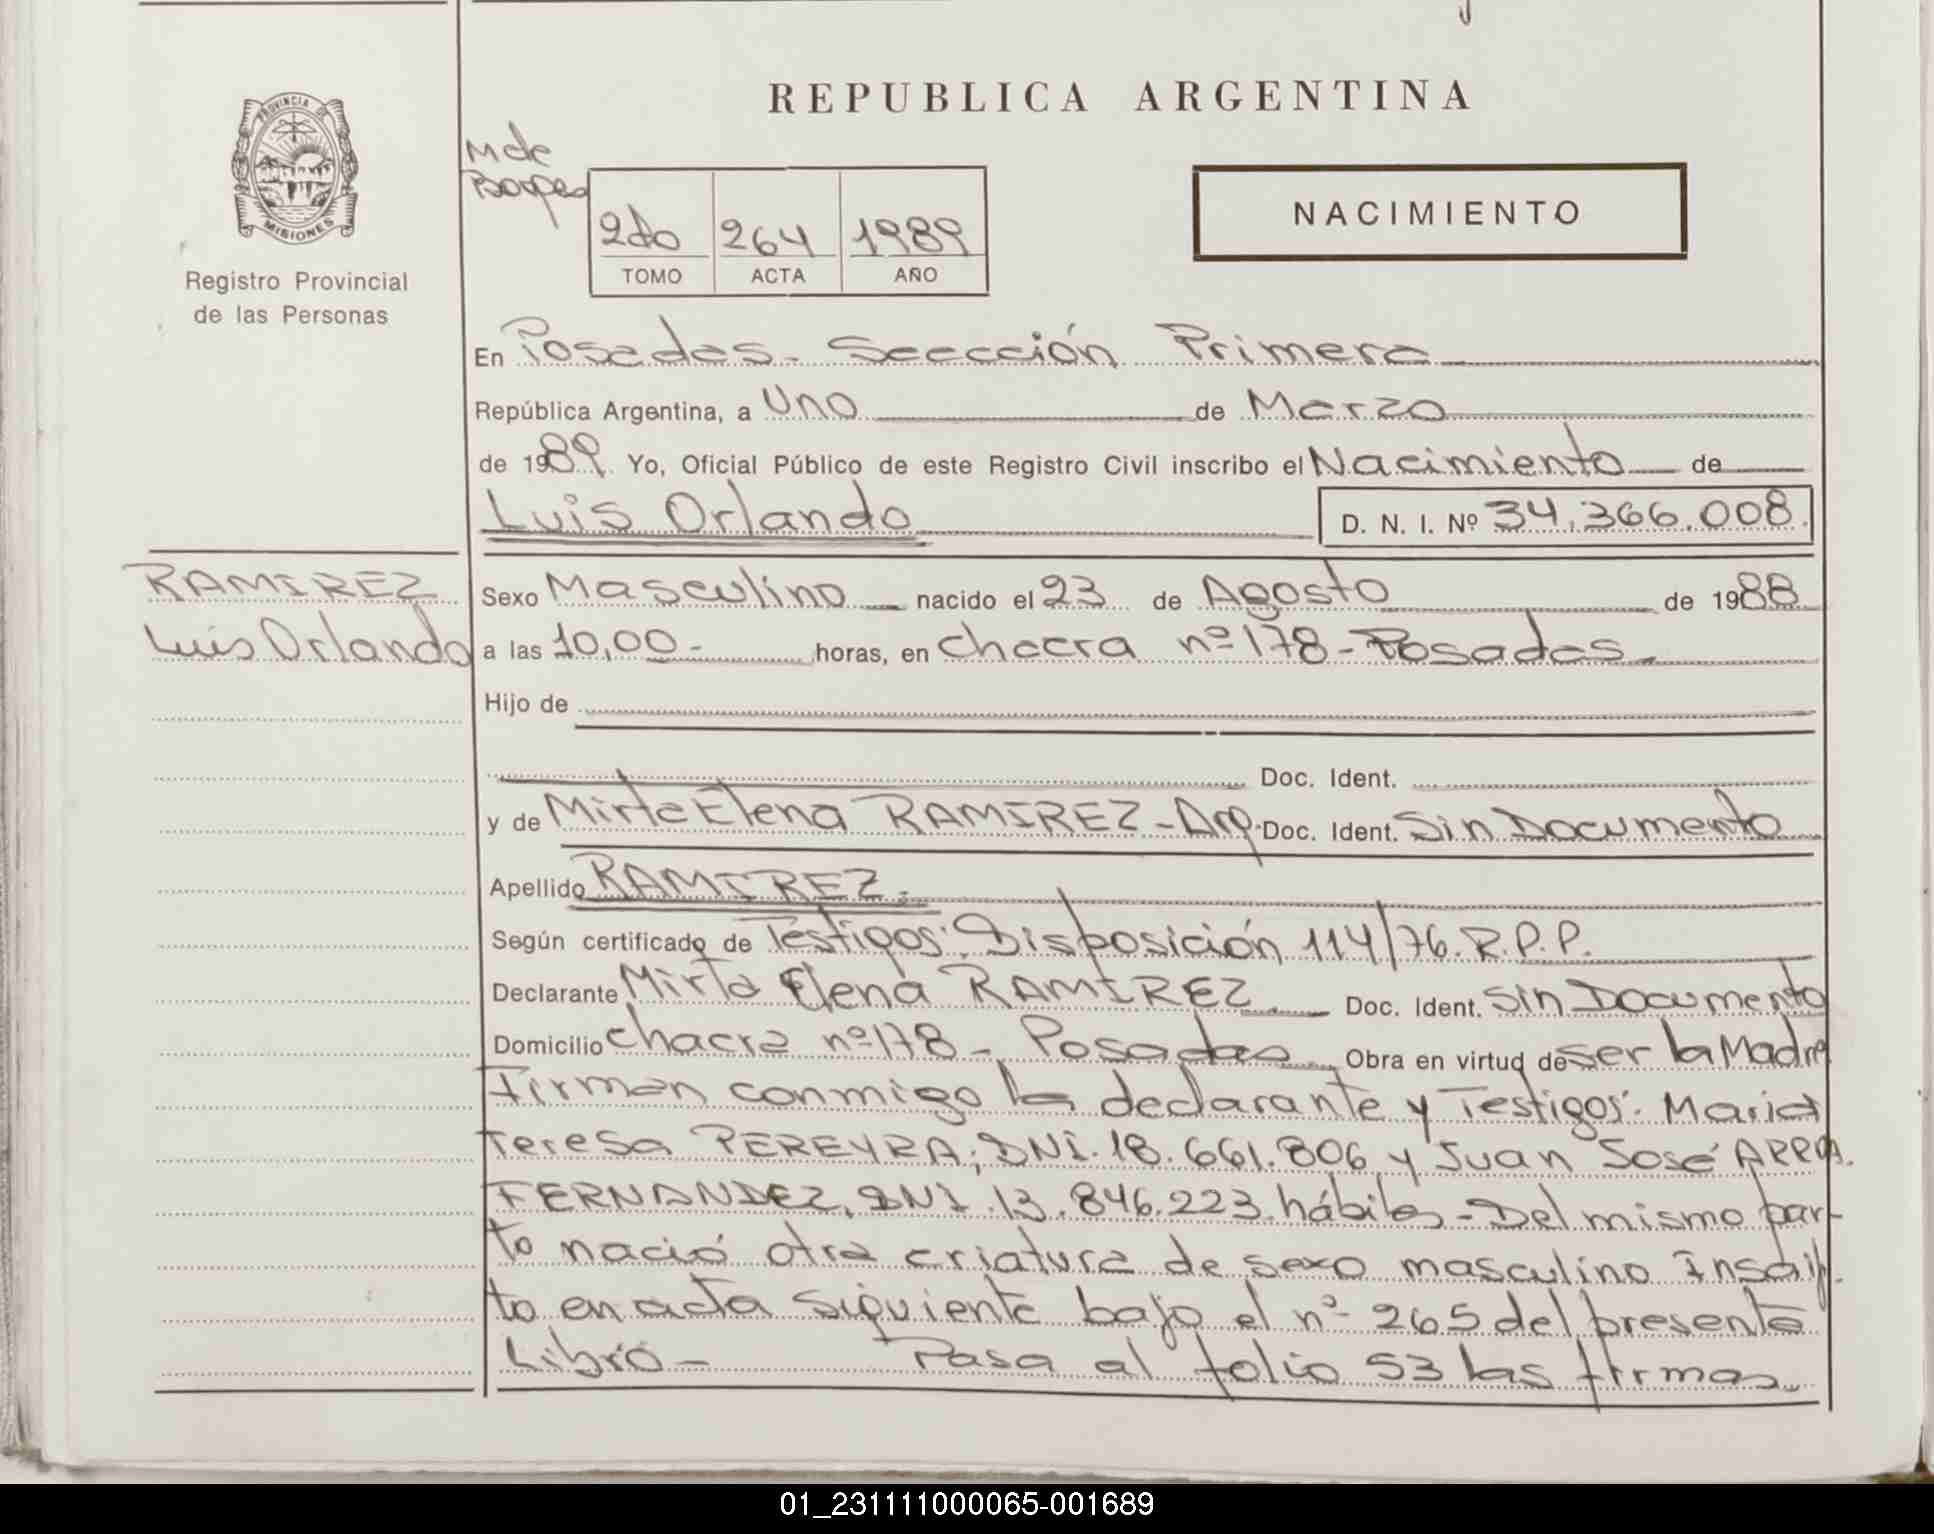 REPUBLICA ARGENTINA
PROVINCIA DE
MISIONES
Registro Provincial
de las Personas
M de
2do 264 1989
TOMO ACTA AÑO
NACIMIENTO
En Posadas - Seccción Primera
República Argentina, a Uno de Marzo
de 1989. Yo, Oficial Público de este Registro Civil inscribo el Nacimiento de
Luis Orlando D. N. I. Nº 34.366.008.
RAMIREZ
Luis Orlando
Sexo Masculino nacido el 23 de Agosto de 1988
a las 10,00- horas, en Chacra nº 178 - Posadas.
Hijo de
Doc. Ident.
y de Mirta Elena RAMIREZ - Arg. Doc. Ident. Sin Documento
Apellido RAMIREZ.
Según certificado de Testigos: Disposición 114/76. R.P.P.
Declarante Mirta Elena RAMIREZ Doc. Ident. Sin Documento
Domicilio Chacra nº 178 - Posadas Obra en virtud de ser la Madre
Firman conmigo la declarante y Testigos: Maria
Teresa PEREYRA; DNI. 18.661.806 y Juan José
FERNANDEZ, DNI. 13.846.223. hábiles - Del mismo par-
to nació otra criatura de sexo masculino Inscrip-
to en acta siguiente bajo el nº 265 del presente
Libro - Pasa al folio 53 las firmas.
01_231111000065-001689